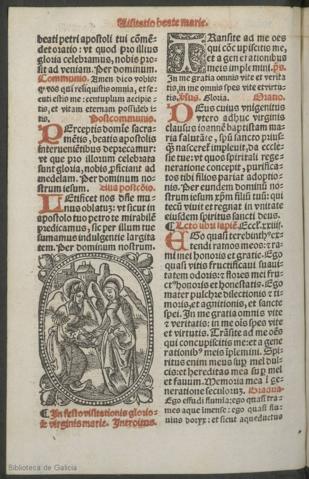 Visitatio beate marie.
beati petri apostoli tui cōmē-
det oratio: vt quod pro illius
gloria celebramus, nobis pro-
sit ad veniam. Per dominum.
Communio. Amen dico vobis
qr vos qui reliquistis omnia, et se-
cuti estis me: centuplum accipie-
tis, et vitam eternam possidebi-
tis. Postcommunio.
PErceptis domīe sacra-
mētis, beatis apostolis
interuenientibus deprecamur:
vt que pro illorum celebrata
sunt gloria, nobis proficiant ad
medelam. Per dominum no-
strum iesum. Alia postcōio.
LEtificet nos dñe mu-
nus oblatū: vt sicut in
apostolo tuo petro te mirabilē
predicamus, sic per illum tue
sumamus indulgentie largita-
tem. Per dominum nostrum.
¶ In festo visitationis glorio-
se virginis marie. Introitus.
TRansite ad me oēs
qui cōcupiscitis me,
et a generationibus
meis implemini. ps.
In me gratia omnis vite et verita-
tis, in me omnis spes vite et virtu-
tis. Gloria. Oratio.
DEus cuius vnigenitus
vtero adhuc virginis
clausus ioannē baptistam ma-
ria salutāte, spū sancto prius-
q̄ nasceret impleuit, da eccle-
sie tue: vt quos spiritali rege-
neratione concepit, purifica-
tos tibi filios pariat adoptio-
nis. Per eundem dominū no-
strum iesum xp̄m filiū tuū: qui
tecū viuit et regnat in vnitate
eiusdem spiritus sancti deus.
¶ Lectio libri sapiē. Eccl. xxiiij.
EGo quasi terebinthꝰ ex-
tendi ramos meos: et ra-
mi mei honoris et gratie. Ego
quasi vitis fructificaui suaui-
tatem odoris: et flores mei fru-
ctꝰ honoris et honestatis. Ego
mater pulchre dilectionis et ti-
moris, et agnitionis, et sancte
spei. In me gratia omnis vite
et veritatis: in me oīs spes vite
et virtutis. Trāsite ad me oēs
qui concupiscitis me: et a gene-
rationibꝰ meis implemini. Spi-
ritus enim meus sup mel dul-
cis: et hereditas mea sup mel
et fauum. Memoria mea ī ge-
neratione seculorum. Graduale.
Ego effudi flumina: ego quasi tra-
mes aque immense: ego quasi flu-
uius doryx: et sicut aqueductus
Biblioteca de Galicia